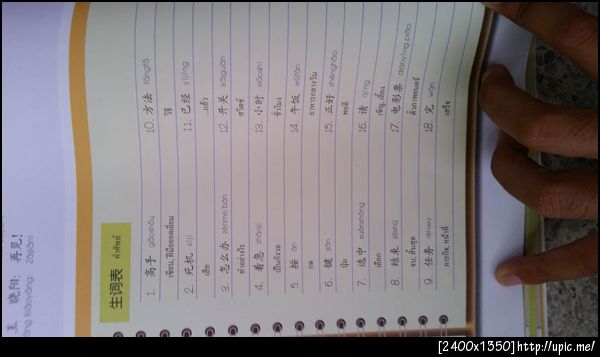 王晓阳: 再见!
Wáng Xiǎoyáng: Zàijiàn!
生词表 คำศัพท์
1. 高手 gāoshǒu
เซียน, ฝีมือยอดเยี่ยม
2. 死机 sǐjī
เสีย
3. 怎么办 zěnme bàn
ทำอย่างไร
4. 着急 zháojí
เป็นกังวล
5. 按 àn
กด
6. 键 jiàn
ปุ่ม
7. 选中 xuǎnzhòng
เลือก
8. 结束 jiéshù
จบ, สิ้นสุด
9. 任务 rènwu
ภารกิจ, หน้าที่
10. 方法 fāngfǎ
วิธี
11. 已经 yǐjīng
...แล้ว
12. 开关 kāiguān
สวิตช์
13. 小时 xiǎoshí
ชั่วโมง
14. 午饭 wǔfàn
อาหารกลางวัน
15. 正好 zhènghǎo
พอดี
16. 请 qǐng
เชิญ, เลี้ยง
17. 电影票 diànyǐng piào
ตั๋วภาพยนตร์
18. 完 wán
เสร็จ
[2400x1350]http://upic.me/